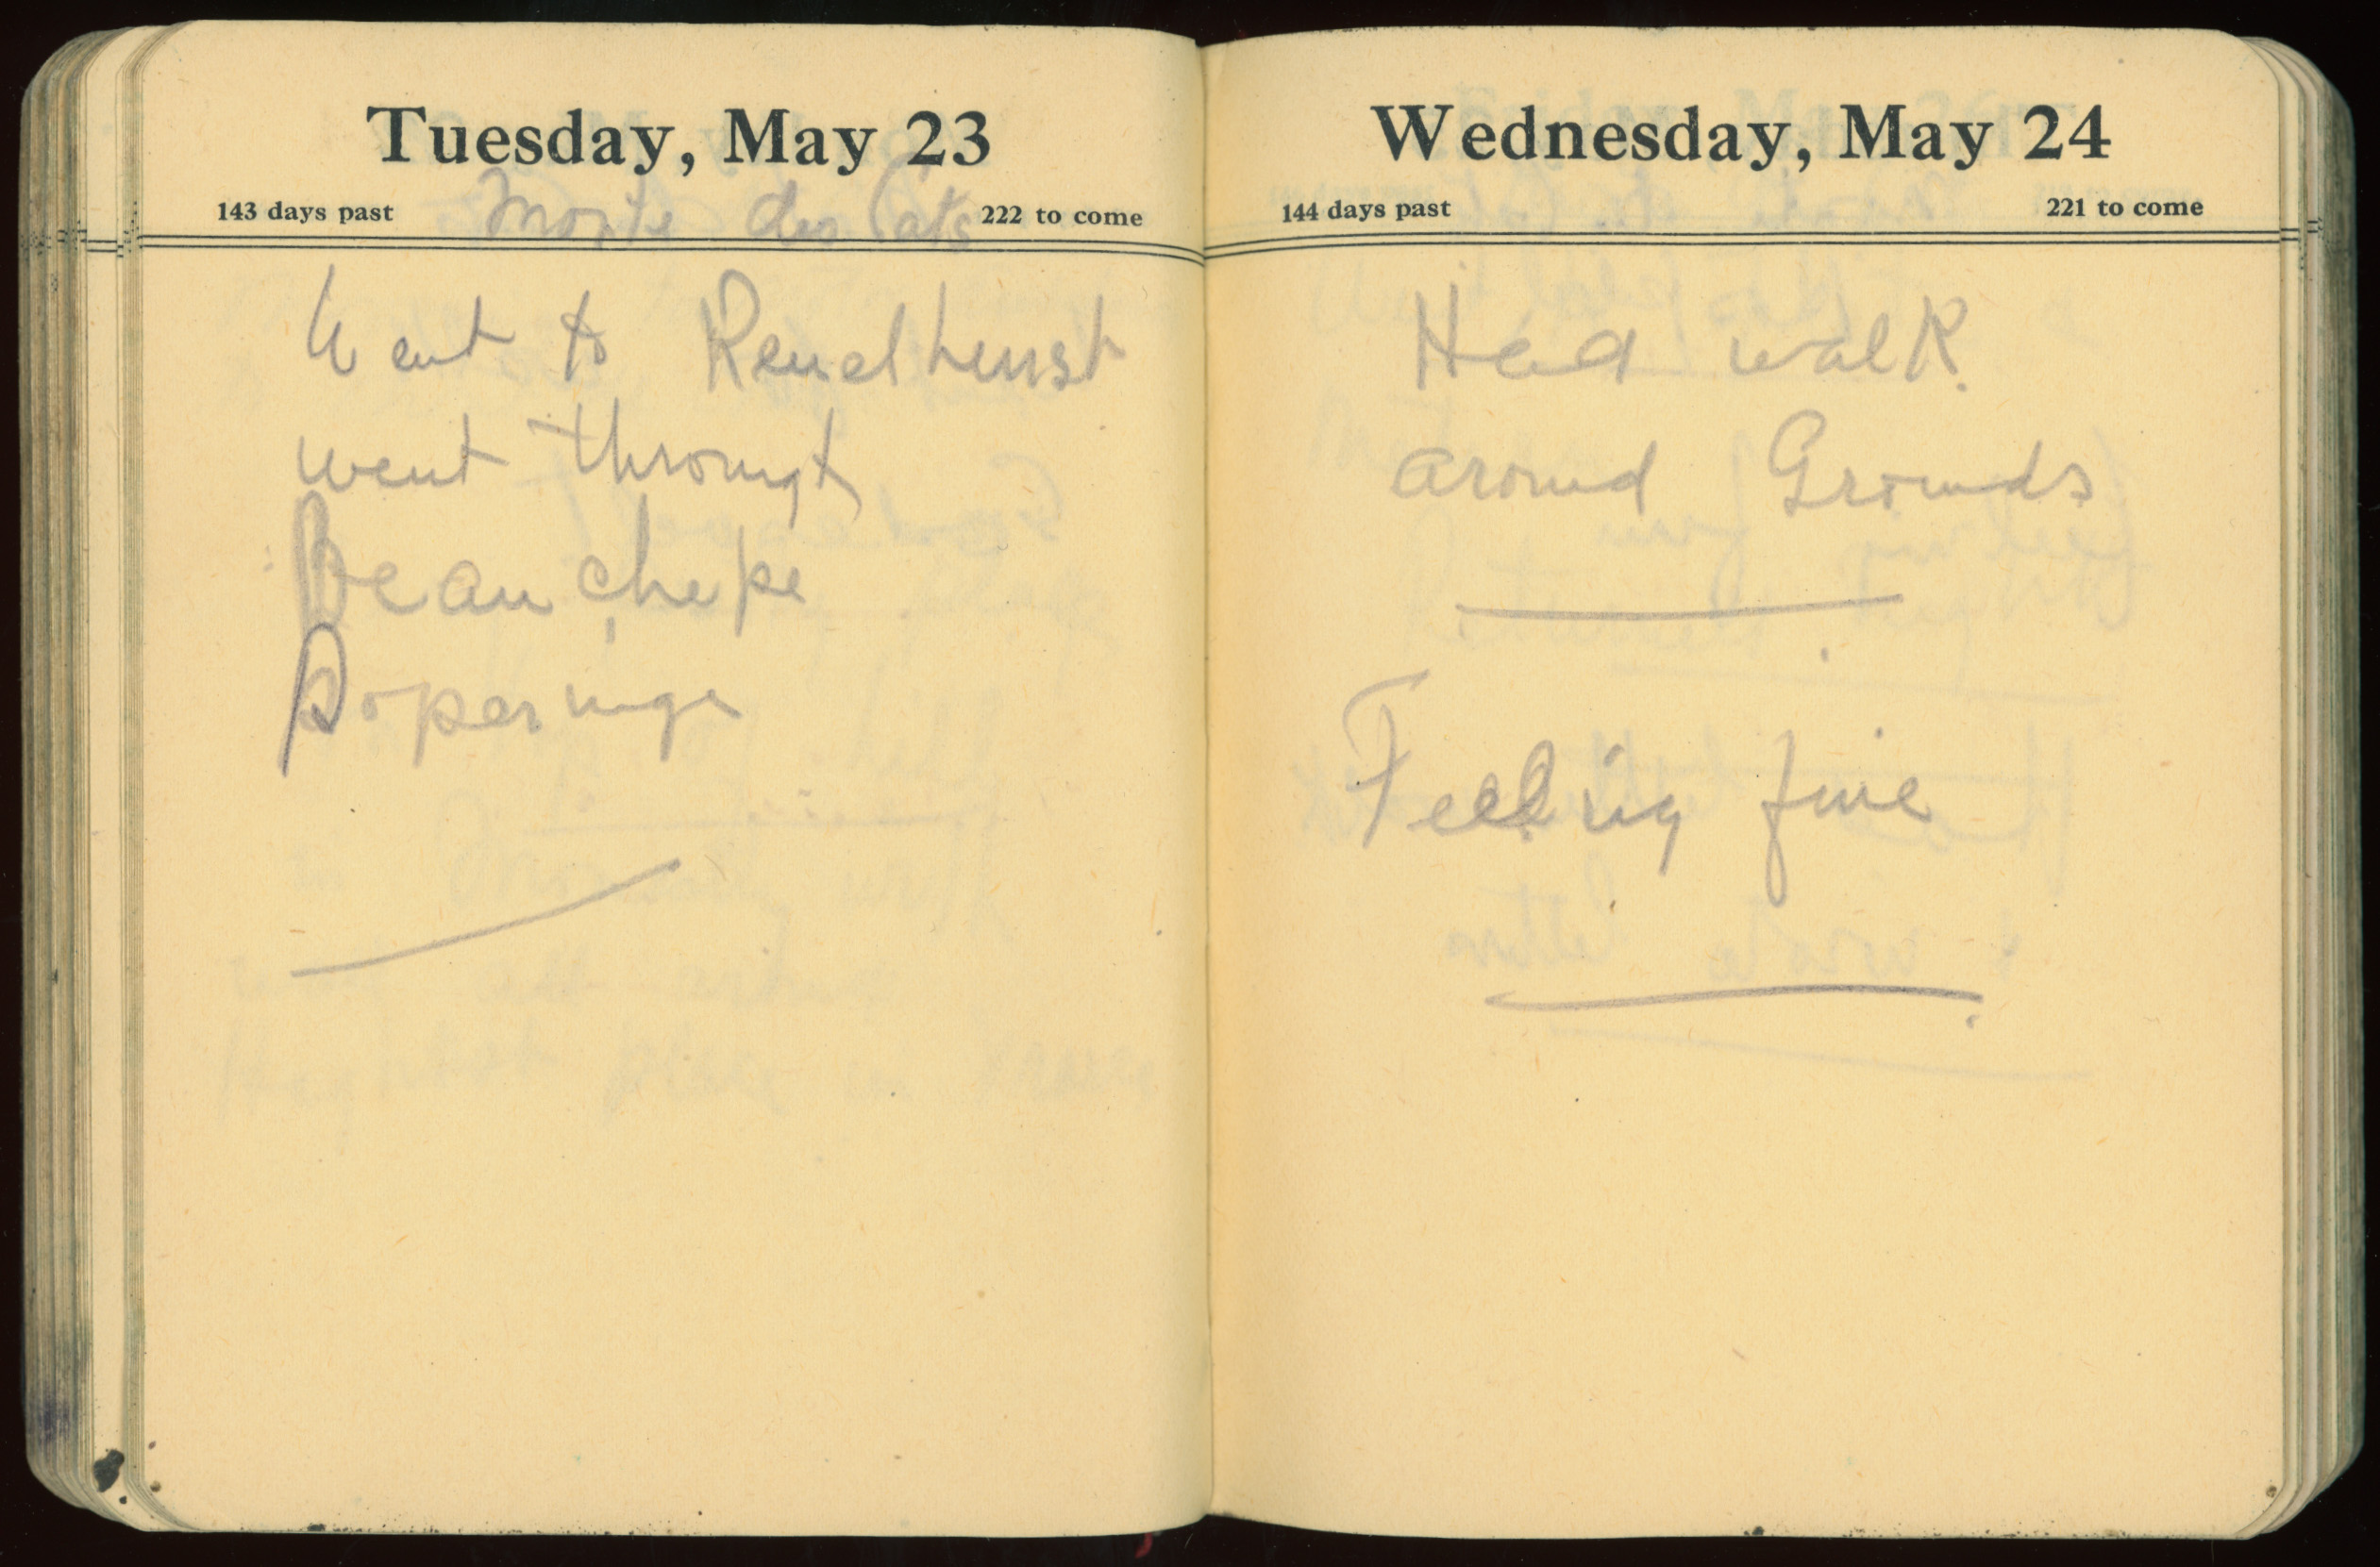 Tuesday, May 23
143 days past Monte des Cats 222 to come
Went to
went through
Poperinge
Wednesday, May 24
144 days past 221 to come
Had walk
around Grounds
Feeling fine